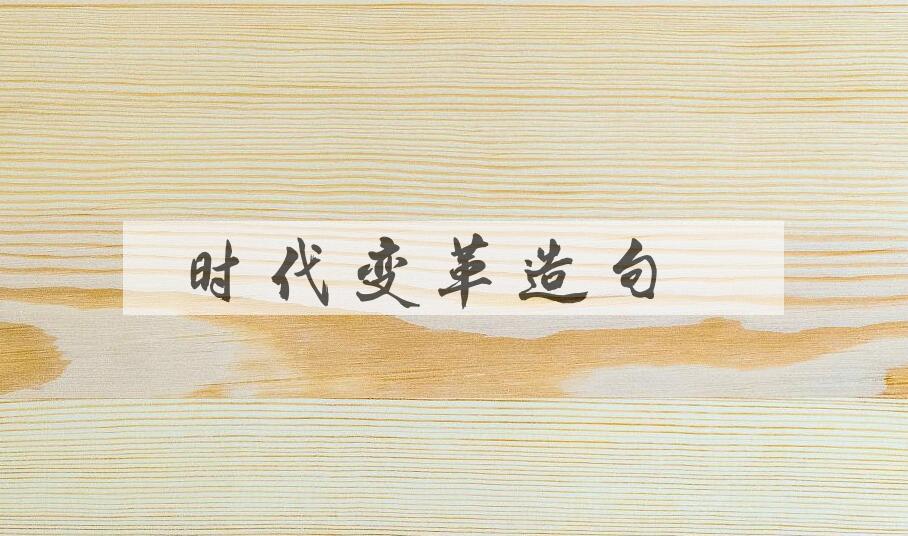 时代变革造句